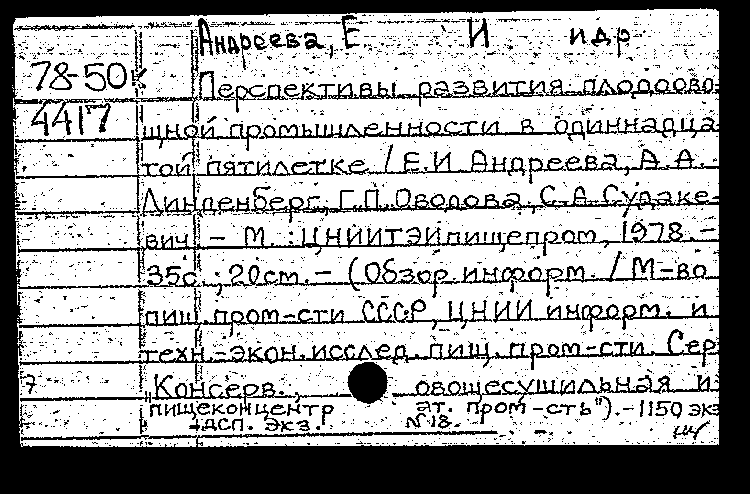 Андреева, Е И и др
78-50к
Перспективы развития плодоово-
4417
щной промышленности в одиннадца-
той пятилетке / Е.И Андреева, А.А.
Линденберг, Г.П. Оводова, С.А Судаке-
вич. – М. : ЦНИИТЭИпищепром, 1978. –
35с.; 20см. – (Обзор. информ. / М-во
пищ. пром-сти СССР, ЦНИИ информ. и
техн.-экон. исслед. пищ. пром-сти. Сер
7
„Консерв., овощесушильная и
пищеконцентр ат. пром-сть"). – 1150 экз
дсп. Экз. №18.